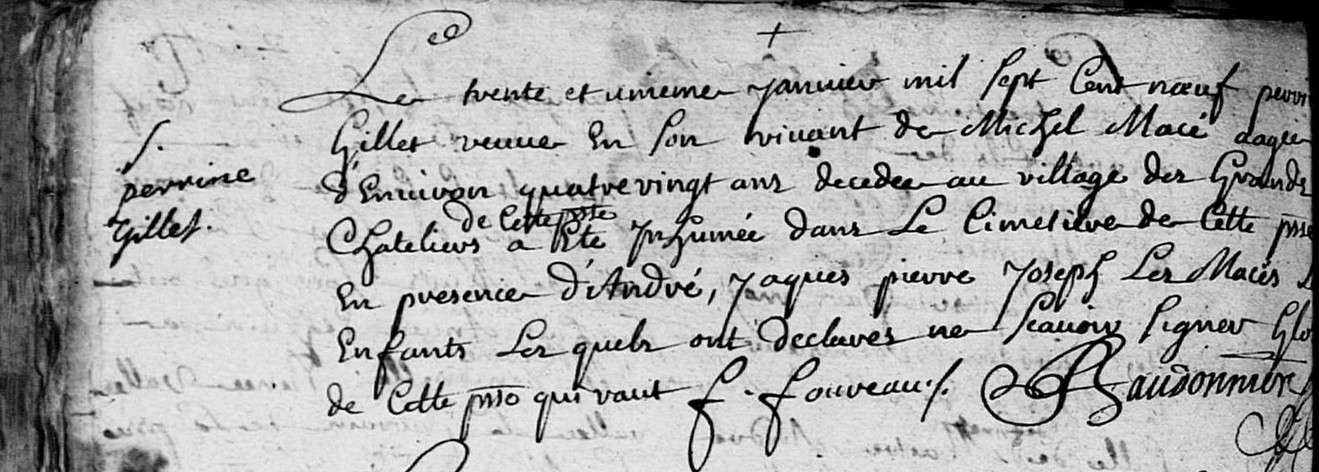 Le trente et unieme Janvier mil sept Cent nœuf perri
S.
perrine
Gillet.
Gillet veuue En son viuant de Michel Macé aagee
d'Enuiron quatre vingt ans decedee au village des Grands
de Cette psse
Chateliers a Este Inhumée dans Le Cimetiere de Cette psse
En presence d'André, Jaques pierre Joseph Les Macés
Enfants Les quels ont declarés ne scauoir signer
de Cette psse qui vaut f. fouveau./. Baudonniere